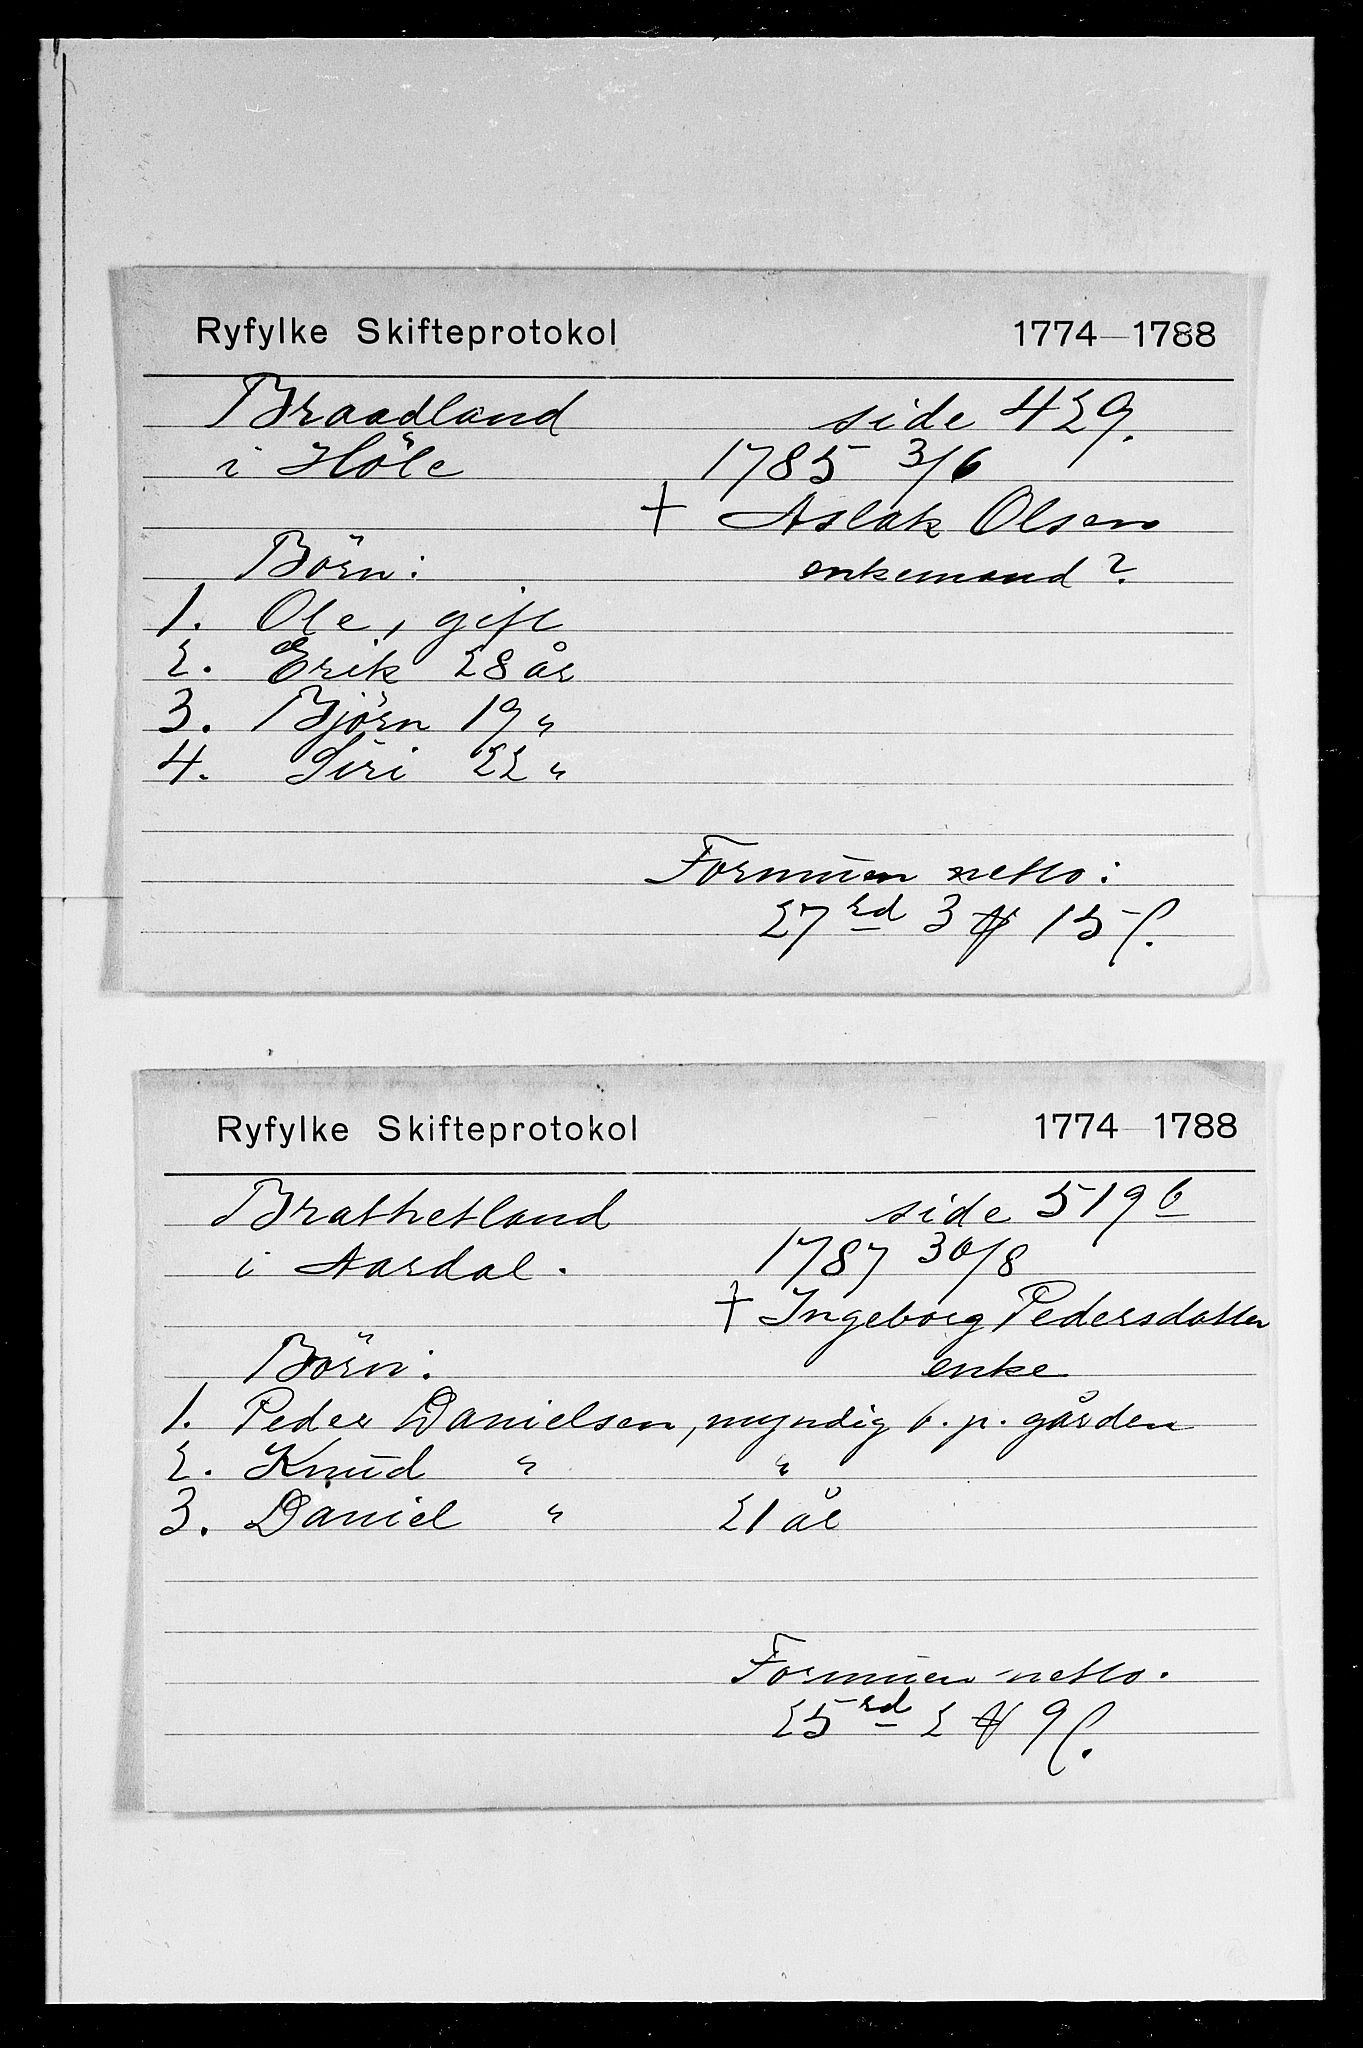 Ryfylke Skifteprotokol 1774-1788
Braadland side 429.
i Höle 1785 3/6
† Aslak Olsen
Börn: enkemand?
1. Ole, gift
2. Erik 28 år
3. Björn 19 "
4. Siri 22 "
Formuen netto:
27 rd 3 15 ſ.
Ryfylke Skifteprotokol 1774 1788
Brathetland side 519 b
i Aardal. 1787 30/8
† Ingeborg Pedersdatter
Börn: enke
1. Peder Danielsen, myndig b. p. gården
2. Knud " "
3. Daniel " 21 år
Formuen netto.
25 rd 2 9 ſ.